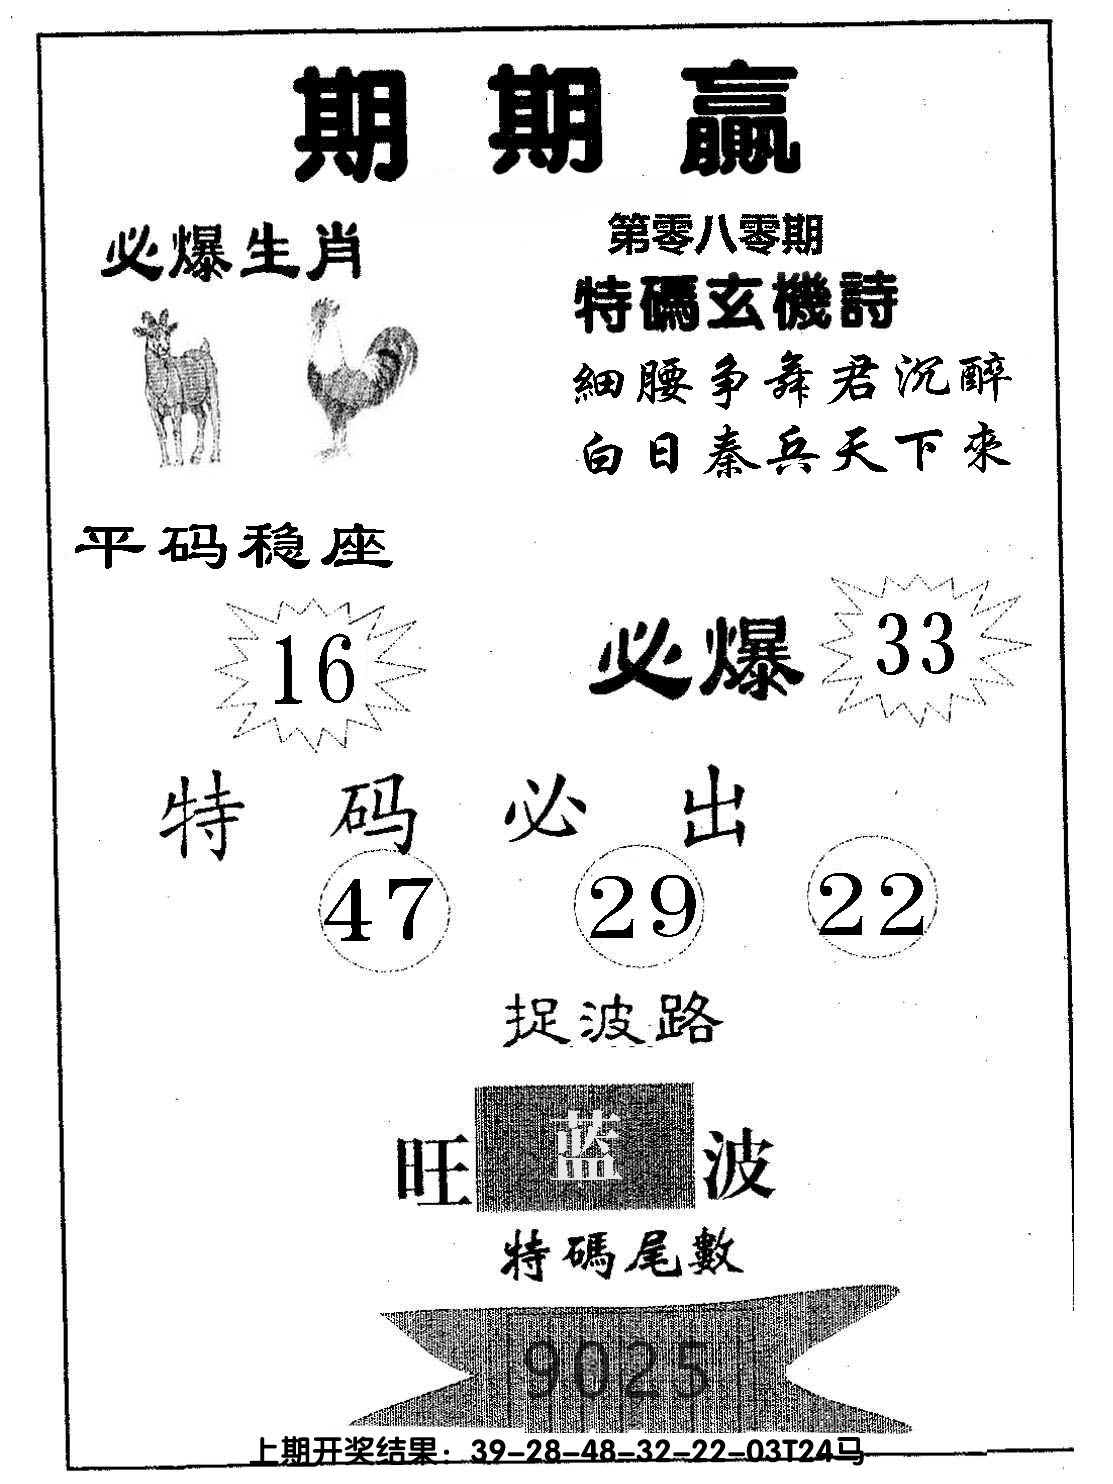 期期赢
必爆生肖
第零八零期
特碼玄機詩
細腰争舞君沉醉
白日秦兵天下來
平码稳座
16
必爆
33
特码必出
47 29 22
捉波路
旺蓝波
特碼尾數
9025
上期开奖结果：39-28-48-32-22-03T24马